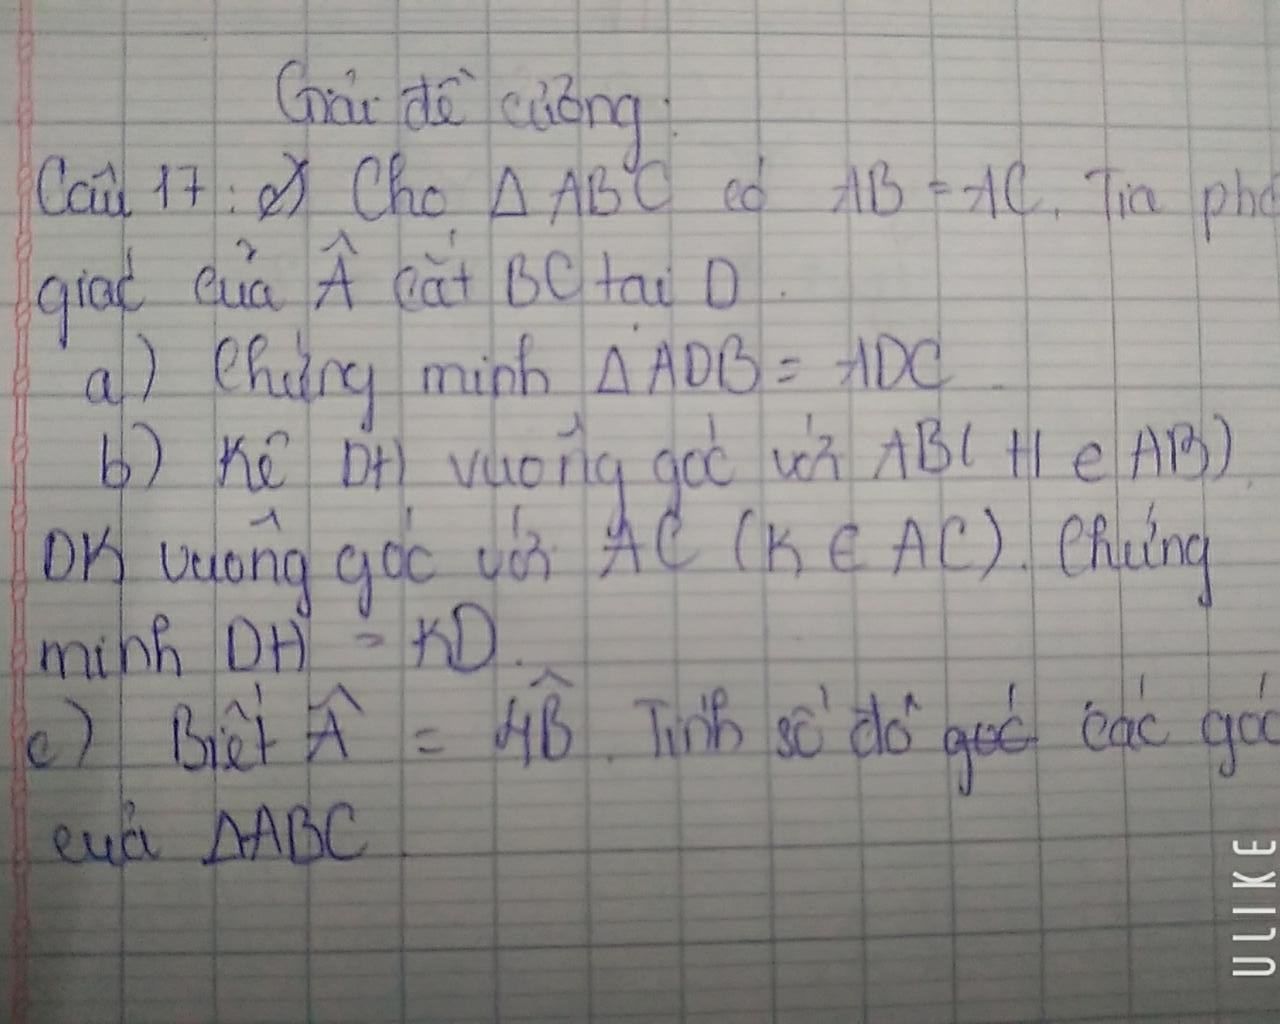 Giải đề cương:
Câu 17: Cho Δ ABC có AB = AC. Tia phâ
giác của Â cắt BC tại D.
a) Chứng minh Δ ADB = ADC
b) Kẻ DH vuông góc với AB ( H e AB)
DK vuông góc với AC (K ∈ AC). Chứng
minh DH = KD.
c) Biết Â = 4B̂. Tính số đo góc các góc
của ΔABC
ULIKE